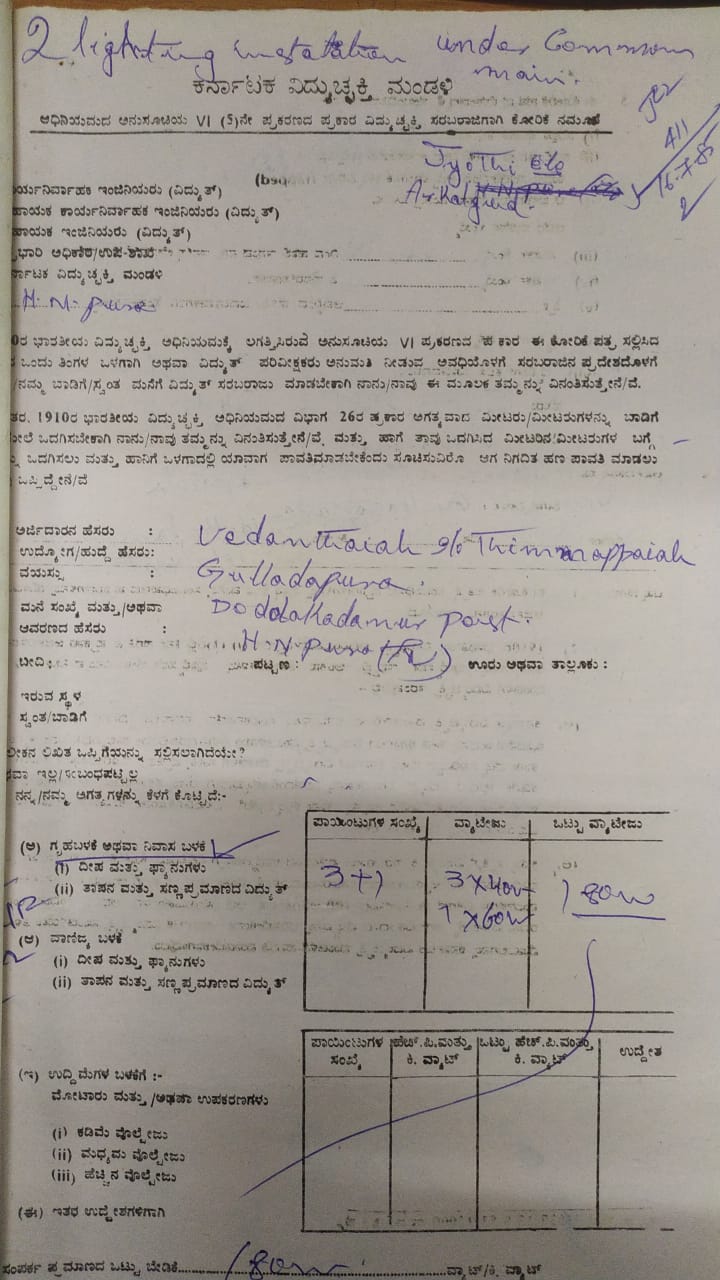 2 lighting installation under Common
main.
ಕರ್ನಾಟಕ ವಿದ್ಯುಚ್ಛಕ್ತಿ ಮಂಡಳಿ
ಅಧಿನಿಯಮದ ಅನುಸೂಚಿಯ VI (5)ನೇ ಪ್ರಕರಣದ ಪ್ರಕಾರ ವಿದ್ಯುಚ್ಛಕ್ತಿ ಸರಬರಾಜಿಗಾಗಿ ಕೋರಿಕೆ ನಮೂನೆ
411
16-7-85
2
Jyothi
Arkalgud.
ರ್ಯನಿರ್ವಾಹಕ ಇಂಜಿನಿಯರು (ವಿದ್ಯುತ್)
ಹಾಯಕ ಕಾರ್ಯನಿರ್ವಾಹಕ ಇಂಜಿನಿಯರು (ವಿದ್ಯುತ್)
ಹಾಯಕ ಇಂಜಿನಿಯರು (ವಿದ್ಯುತ್)
ಭಾರಿ ಅಧಿಕಾರಿ/ಉಪ-ಶಾಖೆ
ರ್ನಾಟಕ ವಿದ್ಯುಚ್ಛಕ್ತಿ ಮಂಡಳಿ
H. N. pura
0ರ ಭಾರತೀಯ ವಿದ್ಯುಚ್ಛಕ್ತಿ ಅಧಿನಿಯಮಕ್ಕೆ ಲಗತ್ತಿಸಿರುವ ಅನುಸೂಚಿಯ VI ಪ್ರಕರಣದ ಪ್ರಕಾರ ಈ ಕೋರಿಕೆ ಪತ್ರ ಸಲ್ಲಿಸಿದ
ಒಂದು ತಿಂಗಳ ಒಳಗಾಗಿ ಅಥವಾ ವಿದ್ಯುತ್ ಪರಿವೀಕ್ಷಕರು ಅನುಮತಿ ನೀಡುವ ಅವಧಿಯೊಳಗೆ ಸರಬರಾಜಿನ ಪ್ರದೇಶದೊಳಗೆ
/ನಮ್ಮ ಬಾಡಿಗೆ/ಸ್ವಂತ ಮನೆಗೆ ವಿದ್ಯುತ್ ಸರಬರಾಜು ಮಾಡಬೇಕಾಗಿ ನಾನು/ನಾವು ಈ ಮೂಲಕ ತಮ್ಮನ್ನು ವಿನಂತಿಸುತ್ತೇನೆ/ವೆ.
ತರ, 1910ರ ಭಾರತೀಯ ವಿದ್ಯುಚ್ಛಕ್ತಿ ಅಧಿನಿಯಮದ ವಿಭಾಗ 26ರ ಪ್ರಕಾರ ಅಗತ್ಯವಾದ ಮೀಟರು/ಮೀಟರುಗಳನ್ನು ಬಾಡಿಗೆ
ಮೇಲೆ ಒದಗಿಸಬೇಕಾಗಿ ನಾನು/ನಾವು ತಮ್ಮನ್ನು ವಿನಂತಿಸುತ್ತೇನೆ/ವೆ, ಮತ್ತು ಹಾಗೆ ತಾವು ಒದಗಿಸಿದ ಮೀಟರಿನ/ಮೀಟರುಗಳ ಬಗ್ಗೆ
ಒದಗಿಸಲು ಮತ್ತು ಹಾನಿಗೆ ಒಳಗಾದಲ್ಲಿ ಯಾವಾಗ ಪಾವತಿಮಾಡಬೇಕೆಂದು ಸೂಚಿಸುವಿರೊ ಆಗ ನಿಗದಿತ ಹಣ ಪಾವತಿ ಮಾಡಲು
ಒಪ್ಪಿದ್ದೇನೆ/ವೆ
ಅರ್ಜಿದಾರನ ಹೆಸರು : Vedanthaiah s/o Thimmappaiah
ಉದ್ಯೋಗ/ಹುದ್ದೆ ಹೆಸರು:
ವಯಸ್ಸು : Gulladapura.
ಮನೆ ಸಂಖ್ಯೆ ಮತ್ತು/ಅಥವಾ Doddakadanur post.
ಆವರಣದ ಹೆಸರು :
H. N. pura (Tq)
ಬೀದಿ: ಪಟ್ಟಣ : ಊರು ಅಥವಾ ತಾಲ್ಲೂಕು :
ಇರುವ ಸ್ಥಳ
ಸ್ವಂತ/ಬಾಡಿಗೆ
ಲೀಕನ ಲಿಖಿತ ಒಪ್ಪಿಗೆಯನ್ನು ಸಲ್ಲಿಸಲಾಗಿದೆಯೇ?
ಥವಾ ಇಲ್ಲ/ಸಂಬಂಧಪಟ್ಟಿಲ್ಲ
ನನ್ನ/ನಮ್ಮ ಅಗತ್ಯಗಳನ್ನು ಕೆಳಗೆ ಕೊಟ್ಟಿದೆ:-
ಪಾಯಿಂಟುಗಳ ಸಂಖ್ಯೆ ವ್ಯಾಟೇಜು ಒಟ್ಟು ವ್ಯಾಟೇಜು
(ಅ) ಗೃಹಬಳಕೆ ಅಥವಾ ನಿವಾಸ ಬಳಕೆ
(i) ದೀಪ ಮತ್ತು ಫ್ಯಾನುಗಳು 3+1 3x40w
(ii) ತಾಪನ ಮತ್ತು ಸಣ್ಣ ಪ್ರಮಾಣದ ವಿದ್ಯುತ್ 1x60w 180w
(ಆ) ವಾಣಿಜ್ಯ ಬಳಕೆ
(i) ದೀಪ ಮತ್ತು ಫ್ಯಾನುಗಳು
(ii) ತಾಪನ ಮತ್ತು ಸಣ್ಣ ಪ್ರಮಾಣದ ವಿದ್ಯುತ್
ಪಾಯಿಂಟುಗಳ ಸಂಖ್ಯೆ ಹೆಚ್.ಪಿ.ಮತ್ತು ಕಿ. ವ್ಯಾಟ್ ಒಟ್ಟು ಹೆಚ್.ಪಿ.ಮತ್ತು ಕಿ. ವ್ಯಾಟ್ ಉದ್ದೇಶ
(ಇ) ಉದ್ದಿಮೆಗಳ ಬಳಕೆಗೆ :-
ಮೋಟಾರು ಮತ್ತು/ಅಥವಾ ಉಪಕರಣಗಳು
(i) ಕಡಿಮೆ ವೋಲ್ಟೇಜು
(ii) ಮಧ್ಯಮ ವೋಲ್ಟೇಜು
(iii) ಹೆಚ್ಚಿನ ವೋಲ್ಟೇಜು
(ಈ) ಇತರ ಉದ್ದೇಶಗಳಿಗಾಗಿ
ಸಂಪರ್ಕ ಪ್ರಮಾಣದ ಒಟ್ಟು ಬೇಡಿಕೆ......180w......ವ್ಯಾಟ್/ಕಿ. ವ್ಯಾಟ್